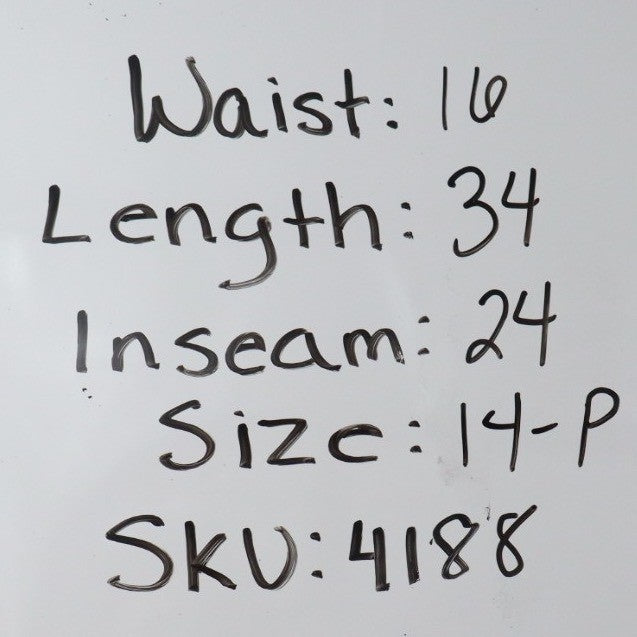 Waist: 16
Length: 34
Inseam: 24
Size: 14-P
SKU: 4188